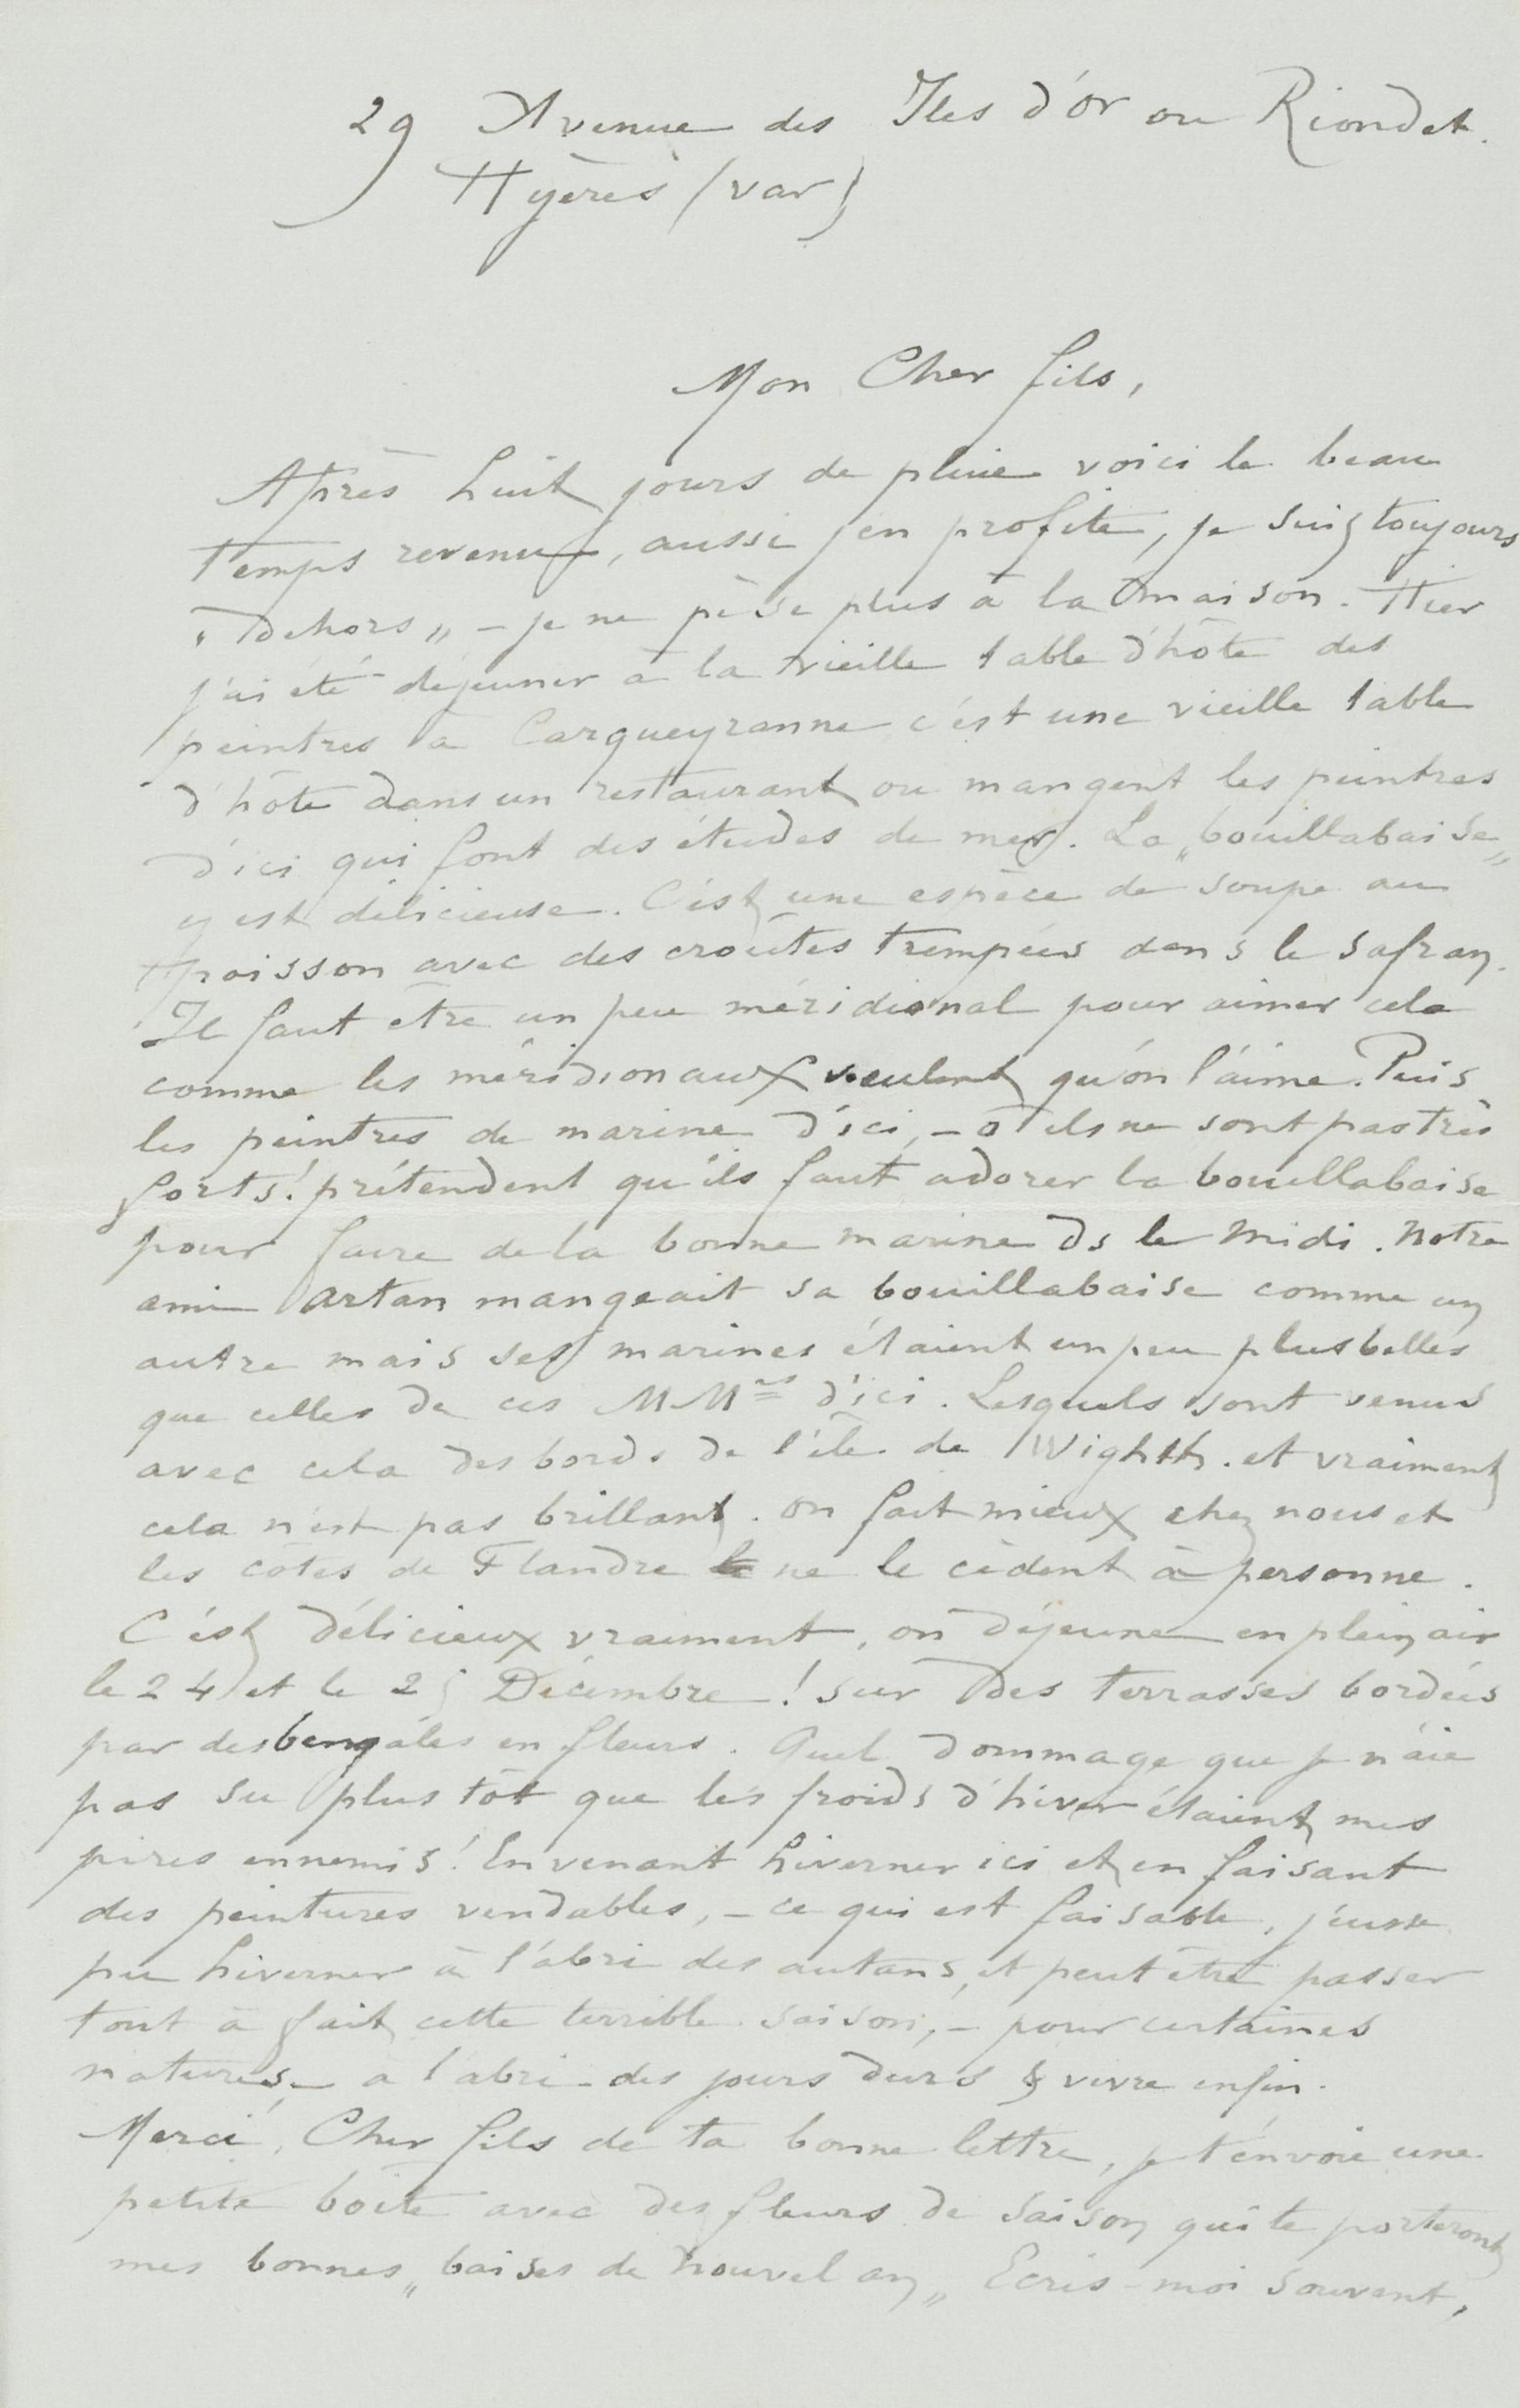 29 Avenue des Iles d'or ou Riondet.
Hyères (var)
Mon Cher fils,
Après huit jours de pluie voici le beau
temps revenu, aussi j'en profite, je suis toujours
„ dehors „ – je ne pèse plus à la maison. Hier
j'ai été déjeuner à la vieille table d'hôte des
peintres à Carqueyranne c'est une vieille table
d'hôte dans un restaurant ou mangent les peintres
d'ici qui font des études de mer. La „bouillabaise„
y est délicieuse. C'est une espèce de soupe au
poisson avec des croûtes trempées dans le safran.
Il faut être un peu méridional pour aimer cela
comme les méridionaux veulent qu'on l'aime. Puis
les peintres de marine d'ici, – ô ils ne sont pas très
forts! prétendent qu'ils faut adorer la bouillabaise
pour faire de la bonne marine ds le midi. Notre
ami Artan mangeait sa bouillabaise comme un
autre mais ses marines étaient un peu plus belles
que celles de ces MMrs d'ici. Lesquels sont venus
avec cela des bords de l'île de Wighth. et vraiment
cela n'est pas brillant. on fait mieux chez nous et
les côtes de Flandre le ne le cèdent à personne.
C'est délicieux vraiment, on déjeune en plein air
le 24 et le 25 Décembre! sur des terrasses bordées
par des bengales en fleurs. Quel dommage que je n'aie
pas su plus tôt que les froids d'hiver étaient mes
pires ennemis! En venant hiverner ici et en faisant
des peintures vendables, – ce qui est faisable, j'eusse
pu hiverner à l'abri des autans, et peut être passer
tout à fait cette terrible saison, – pour certaines
natures – a l'abri des jours durs & vivre enfin.
Merci, Cher fils de ta bonne lettre, je t'envoie une
petite boîte avec des fleurs de saison qui te porteront
mes bonnes „baises de nouvel an„ Ecris-moi souvent,